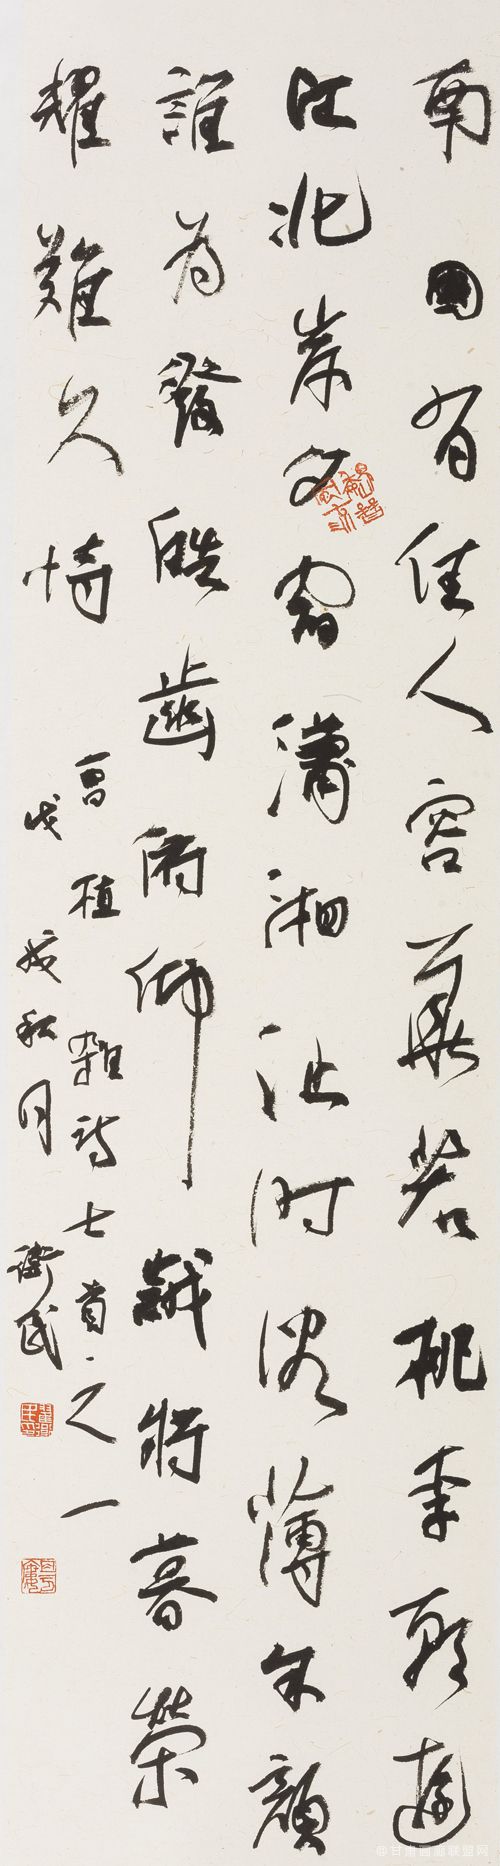 南國有佳人容華若桃李朝遊
江北岸夕宿瀟湘沚時俗薄朱顏
誰為發皓齒俯仰歲將暮榮
耀難久恃
曹植雜詩七首之一
戊戌秋月衛民
@甘肃画廊联盟网